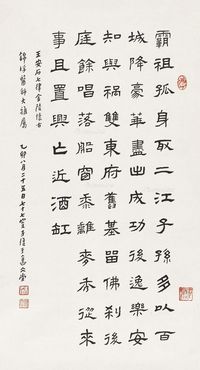 霸祖孤身取二江子孫多以百
城降豪華盡出成功後逸樂安
知與禍雙東府舊基留佛刹後
庭餘唱落船窗黍離麥秀從來
事且置興亡近酒缸
王安石七律金陵懷古
醫師大雅屬
乙卯八月二十五日七十七